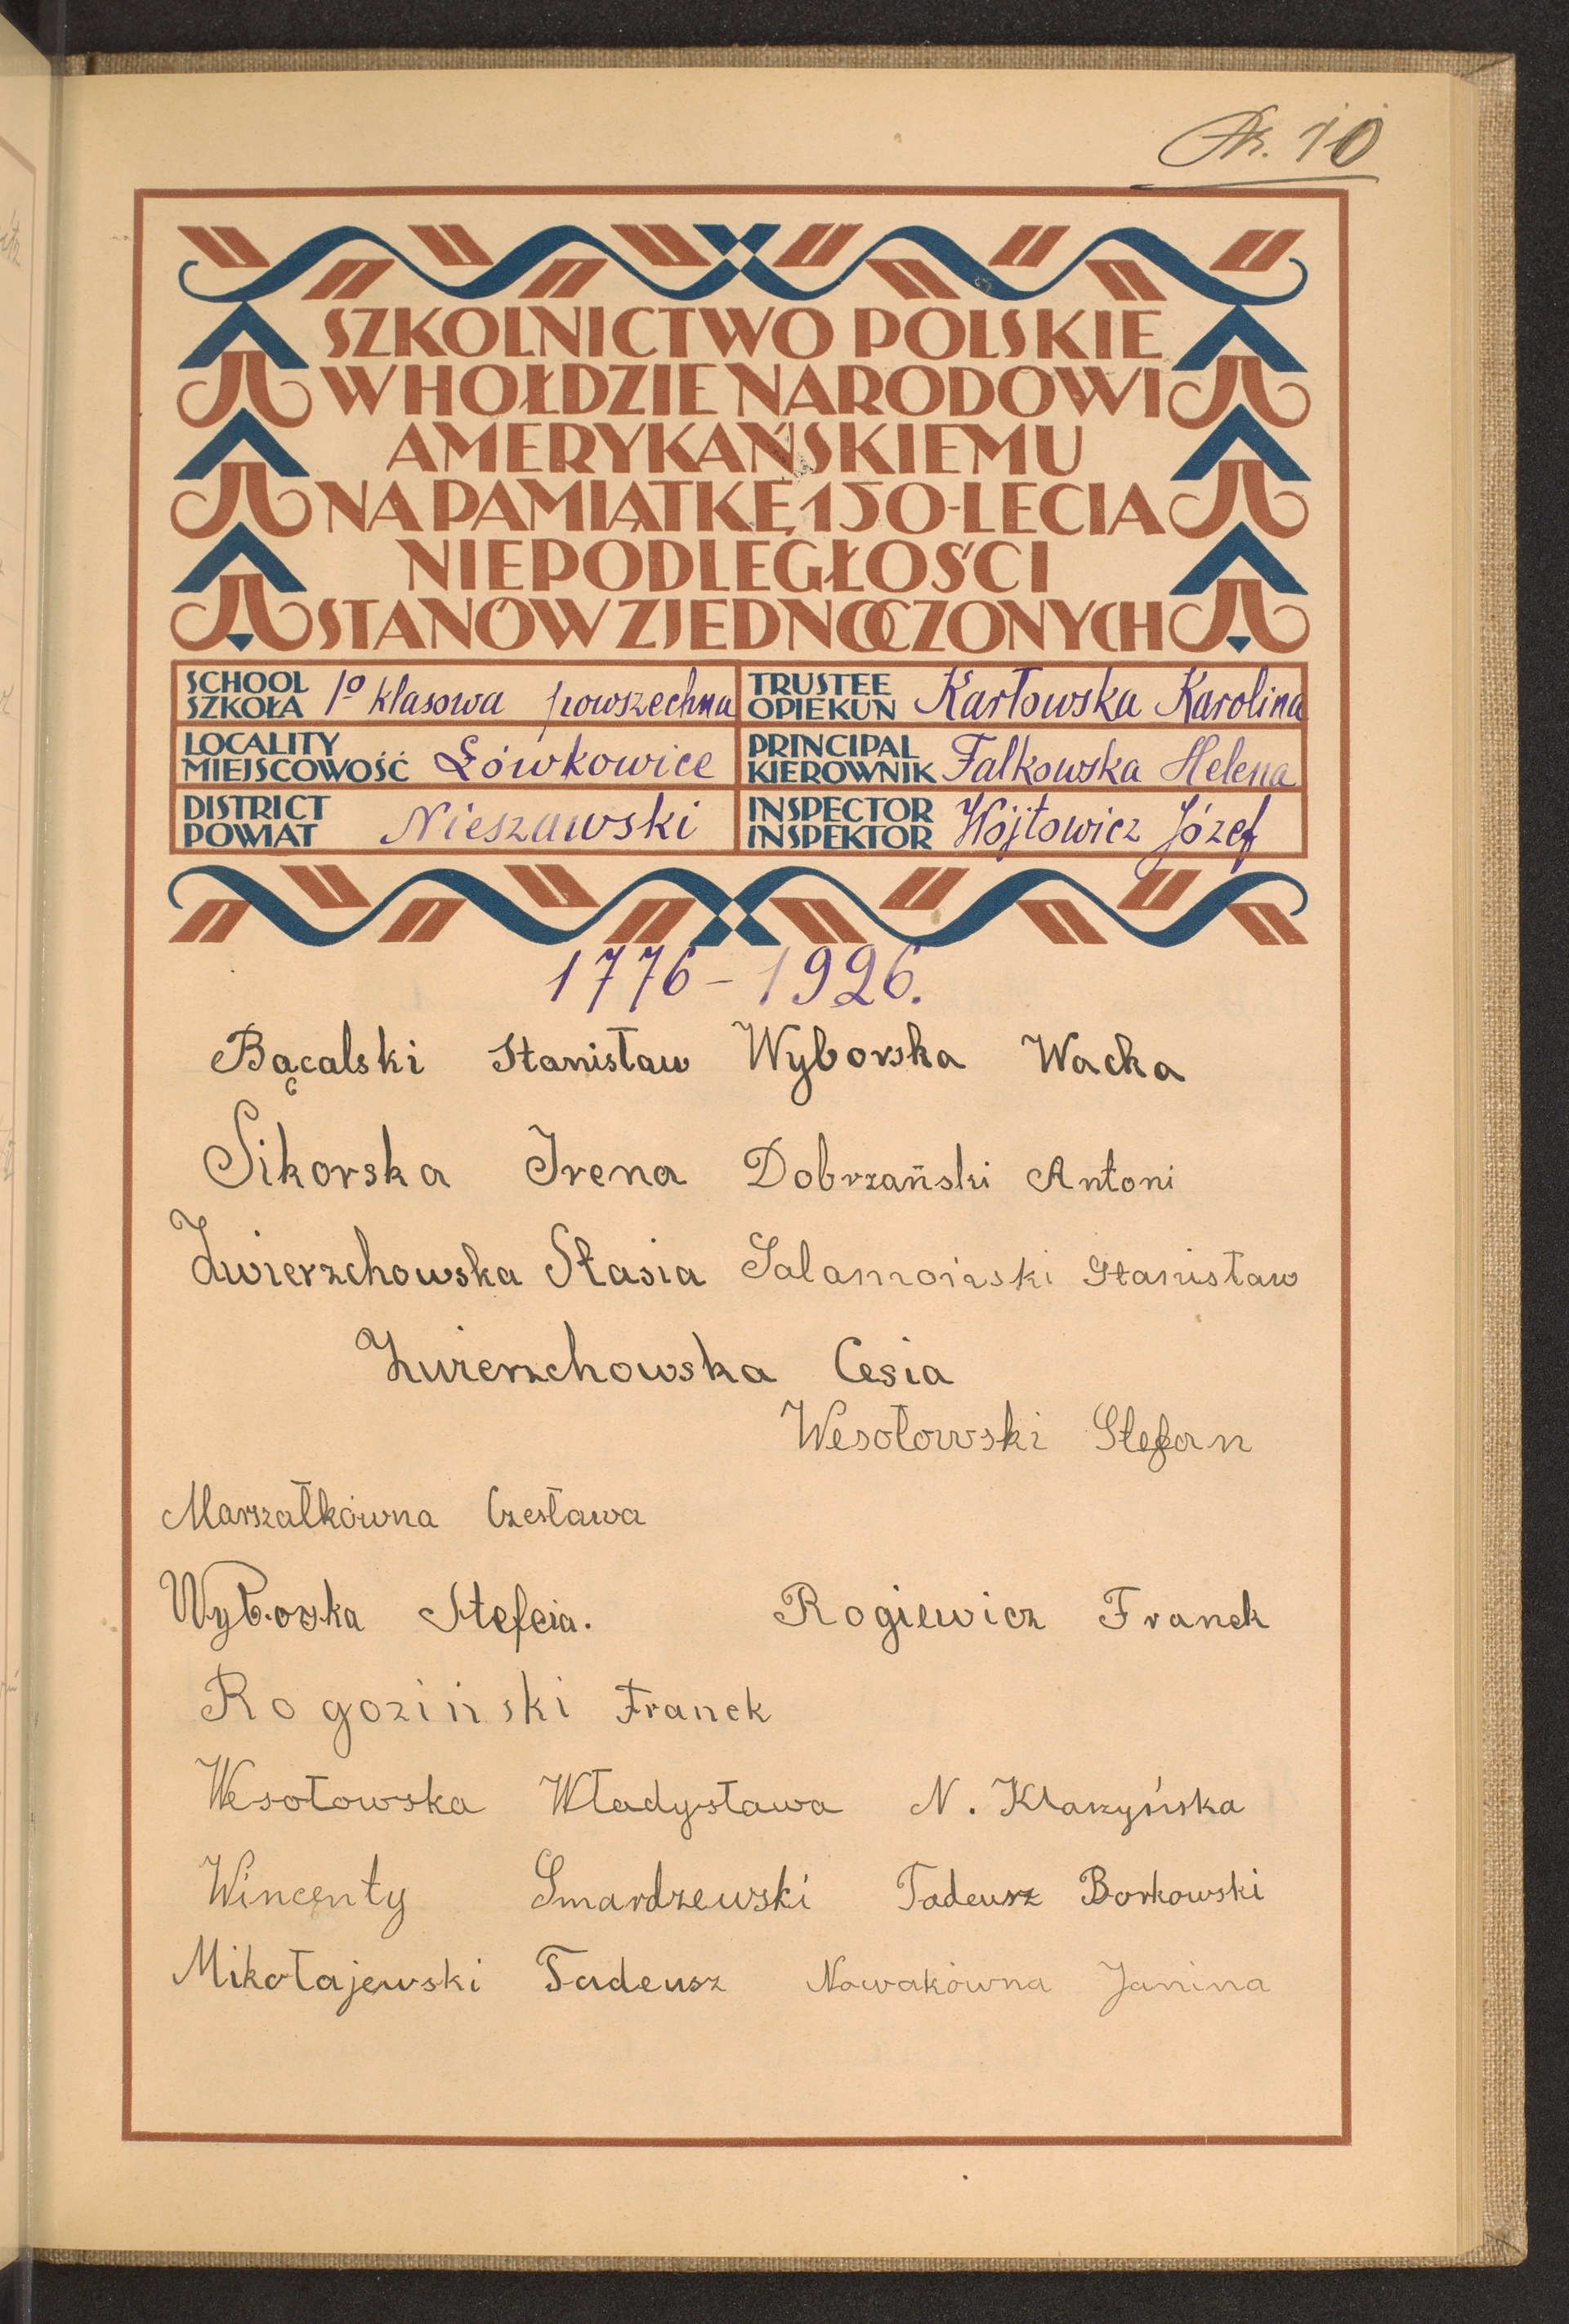 Str. 10
SZKOLNICTWO POLSKIE
W HOŁDZIE NARODOWI
AMERYKAŃSKIEMU
NA PAMIĄTKĘ 150-LECIA
NIEPODLEGŁOŚCI
STANÓW ZJEDNOCZONYCH
SCHOOL SZKOŁA 1º klasowa powszechna TRUSTEE OPIEKUN Karłowska Karolina
LOCALITY MIEJSCOWOŚĆ Łówkowice PRINCIPAL KIEROWNIK Falkowska Helena
DISTRICT POWIAT Nieszawski INSPECTOR INSPEKTOR Wójtowicz Józef
1776-1926.
Bącalski Stanisław Wyborska Wacka
Sikorska Irena Dobrzański Antoni
Zwierzchowska Stasia Salamoński Stanisław
Zwierzchowska Cesia
Wesołowski Stefan
Marszałkówna Czesława
Wyborska Stefcia. Rogiewicz Franek
Rogoziński Franek
Wesołowska Władysława N. Kłaczyńska
Wincenty Smardzewski Tadeusz Borkowski
Mikołajewski Tadeusz Nowakówna Janina